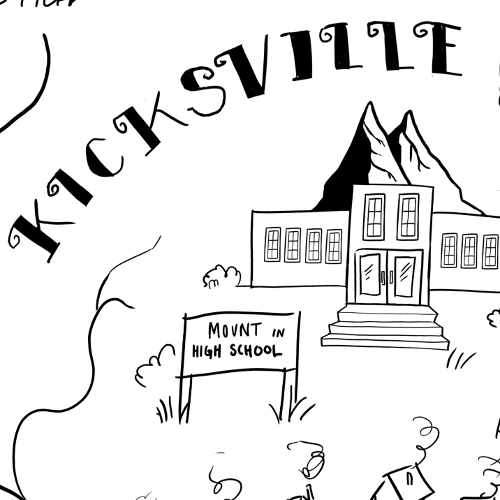 KICKSVILLE
MOUNT IN
HIGH SCHOOL